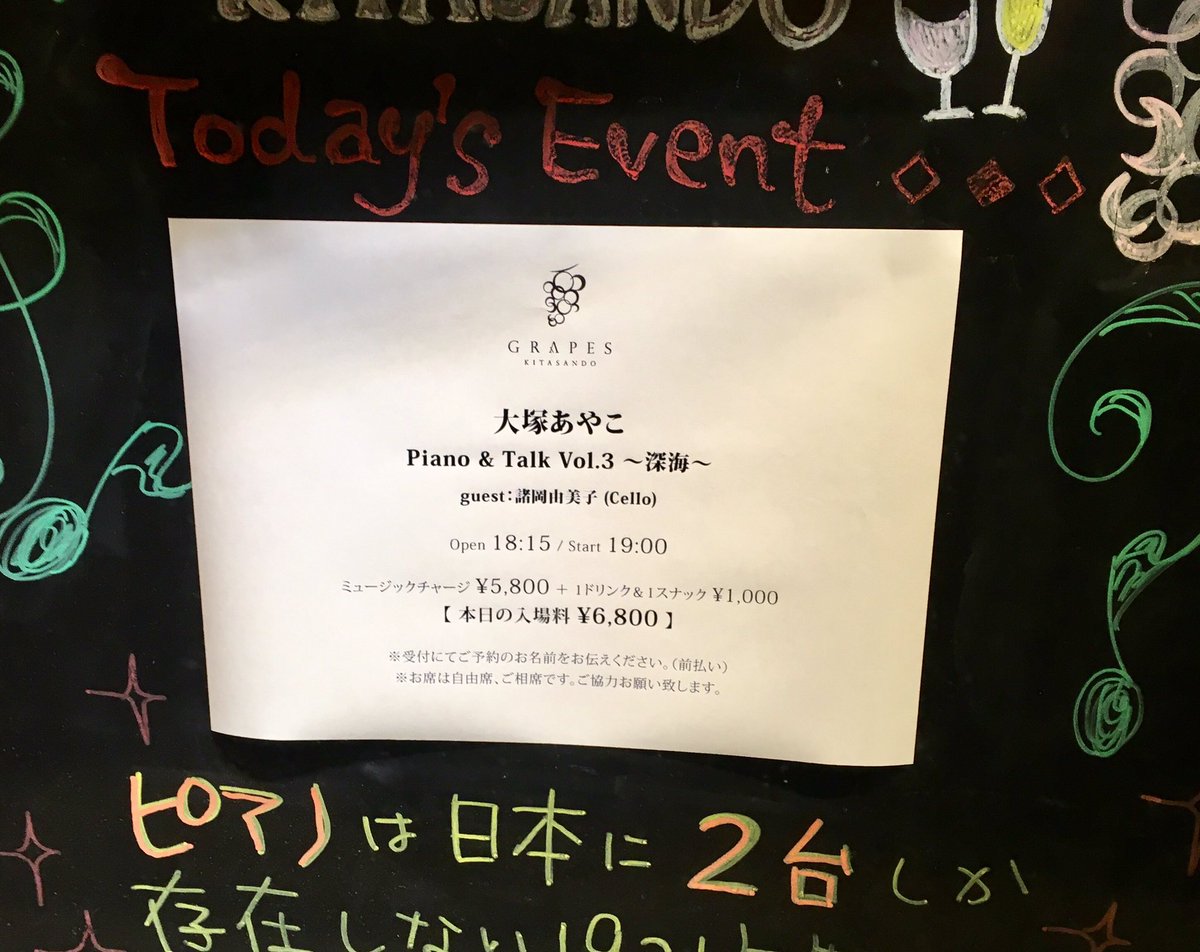 KITASANDO
Today's Event
GRAPES
KITASANDO
大塚あやこ
Piano & Talk Vol.3 〜深海〜
guest:諸岡由美子 (Cello)
Open 18:15 / Start 19:00
ミュージックチャージ ¥5,800 + 1ドリンク&1スナック ¥1,000
【 本日の入場料 ¥6,800 】
※受付にてご予約のお名前をお伝えください。(前払い)
※お席は自由席、ご相席です。ご協力お願い致します。
ピアノは日本に2台しか
存在しない